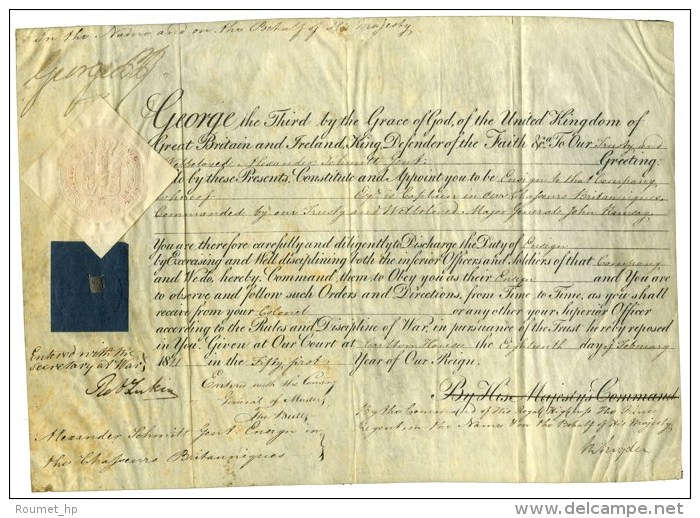 In the Name and on the Behalf of His Majesty,
George P R
George the Third by the Grace of God, of the United Kingdom of
Great Britain and Ireland, King, Defender of the Faith &ca To Our Trusty and
Wellbeloved Alexander Schmitt Gent. Greeting
We do by these Presents, Constitute and Appoint you to be Ensign to that Company
whereof Esqr. is Captain in our Chasseurs Britanniques
Commanded by our Trusty and Wellbeloved Major General John Ramsay,
You are therefore carefully and diligently to Discharge the Duty of Ensign
by Exercising and Well disciplining both the inferior Officers and Soldiers of that Company
and We do hereby Command them to Obey you as their Ensign and You are
to observe and follow such Orders and Directions, from Time to Time, as you shall
receive from your Colonel or any other your Superior Officer
according to the Rules and Discipline of War, in pursuance of the Trust hereby reposed
in You. Given at Our Court at Carlton House the Eighteenth day of February
1811 in the Fifty first Year of Our Reign.
Entered with the
Secretary at War
Entered with the Comsry
General of Musters
By His Majesty's Command
By the Command of His Royal Highness The Prince
Regent in the Name & on the Behalf of His Majesty,
Alexander Schmitt Gent. Ensign in
the Chasseurs Britanniques
Roumet_hp
© delcampe.net